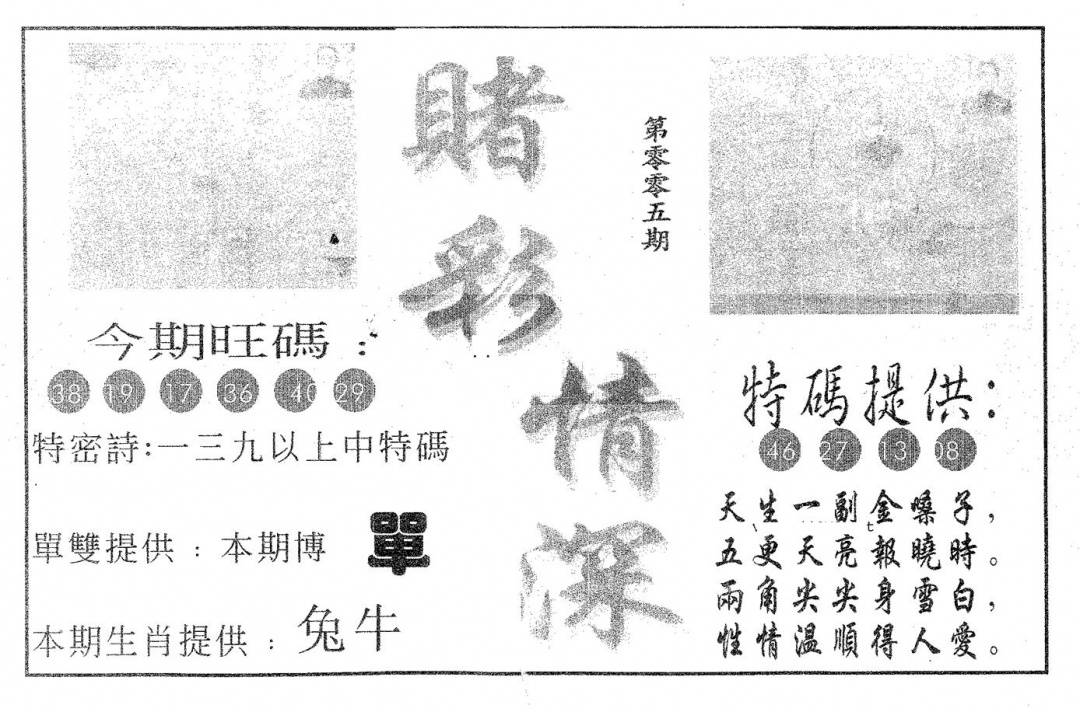 賭彩情深
第零零五期
今期旺碼：
38 19 17 36 40 29
特密詩:一三九以上中特碼
單雙提供：本期博 單
本期生肖提供：兔牛
特碼提供：
46 27 13 08
天生一副金嗓子，
五更天亮報曉時。
兩角尖尖身雪白，
性情溫順得人愛。